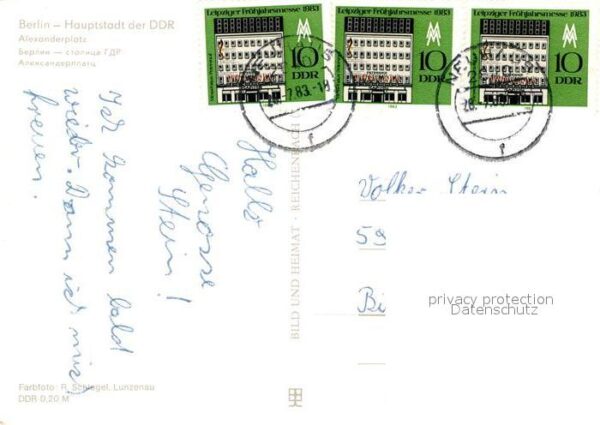 Berlin – Hauptstadt der DDR
Alexanderplatz
Берлин — столица ГДР
Александерплатц
Leipziger Frühjahrsmesse 1983
10
DDR
Leipziger Frühjahrsmesse 1983
10
DDR
Leipziger Frühjahrsmesse 1983
10
DDR
Hallo
Genosse
Stein!
Ich kommen bald
wieder. Dann ist
freuen.
BILD UND HEIMAT · REICHENBACH
Volker Stein
Bi
privacy protection
Datenschutz
Farbfoto: R. Schlegel, Lunzenau
DDR 0,20 M